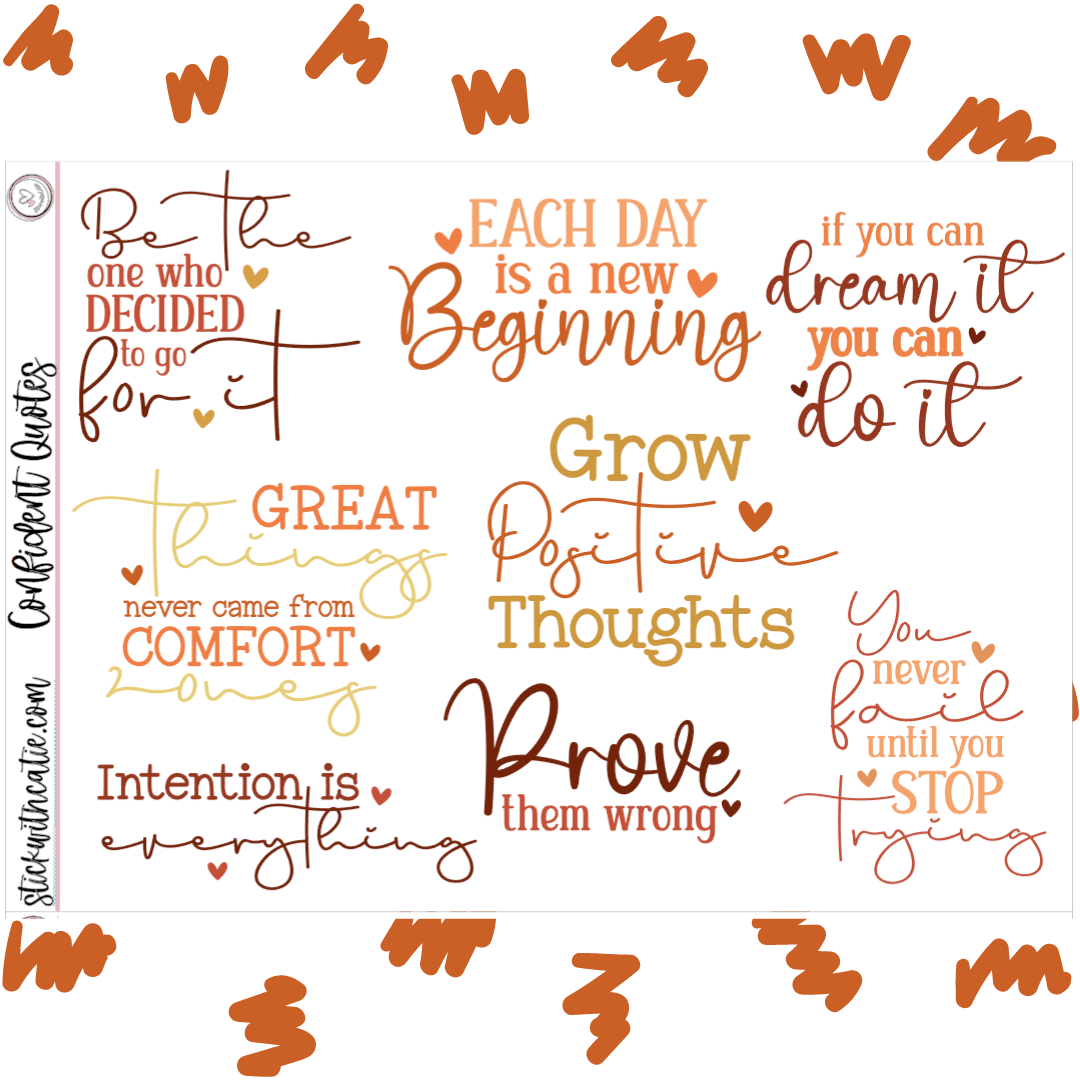 Confident Quotes
stickwithcatie.com
Be the
one who
DECIDED
to go
for it
EACH DAY
is a new
Beginning
if you can
dream it
you can
do it
GREAT
things
never came from
COMFORT
zones
Grow
Positive
Thoughts
Intention is
everything
Prove
them wrong
You
never
fail
until you
STOP
trying